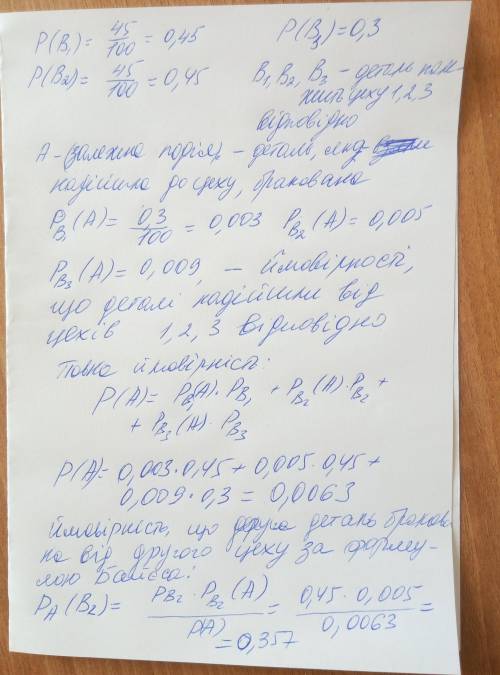 P(B₁) = 45/100 = 0,45 P(B₃) = 0,3
P(B₂) = 45/100 = 0,45 B₁, B₂, B₃ – деталь нале-
жить цеху 1,2,3
відповідно
A – (залежна подія) – деталь, яка
надійшла до цеху, бракована
P_B₁(A) = 0,3/100 = 0,003 P_B₂(A) = 0,005
P_B₃(A) = 0,009, – ймовірності,
що деталі надійшли від
цехів 1, 2, 3 відповідно
Повна ймовірність:
P(A) = P_B₁(A) · P_B₁ + P_B₂(A) · P_B₂ +
+ P_B₃(A) · P_B₃
P(A) = 0,003 · 0,45 + 0,005 · 0,45 +
0,009 · 0,3 = 0,0063
Ймовірність, що друга деталь бракова-
на від другого цеху за форму-
лою Байєса:
P_A(B₂) = P_B₂ · P_B₂(A) / P(A) = 0,45 · 0,005 / 0,0063 =
= 0,357